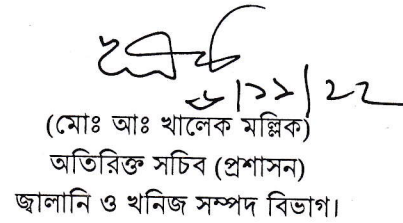 ৬/১১/২২
(মোঃ আঃ খালেক মল্লিক)
অতিরিক্ত সচিব (প্রশাসন)
জ্বালানি ও খনিজ সম্পদ বিভাগ।